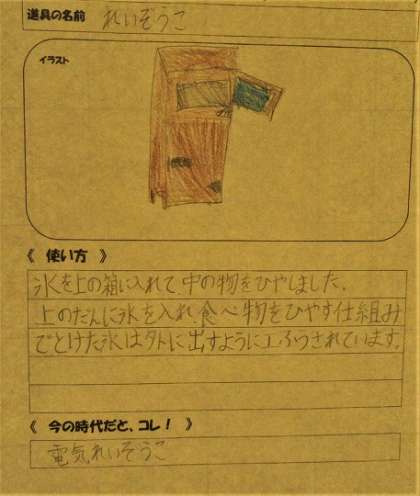 道具の名前 れいぞうこ
イラスト
《 使い方 》
氷を上の箱に入れて中の物をひやしました。
上のだんに氷を入れ食べ物をひやす仕組み
でとけた氷は外に出すようにエふうされています。
《 今の時代だと、コレ! 》
電気れいぞうこ